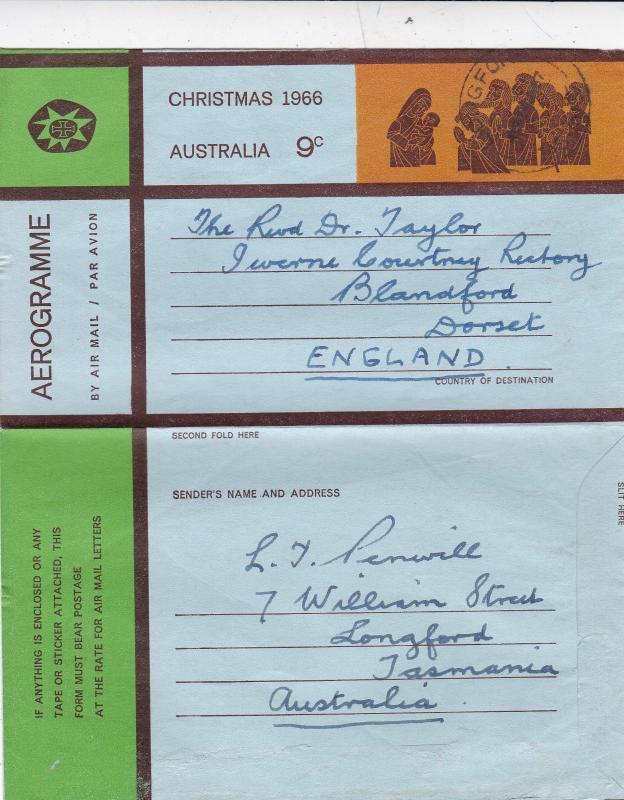 CHRISTMAS 1966
AUSTRALIA 9c
GFOR
AEROGRAMME
BY AIR MAIL / PAR AVION
The Revd Dr. Taylor
Iwerne Courtney Rectory
Blandford
Dorset
ENGLAND
COUNTRY OF DESTINATION
SECOND FOLD HERE
SENDER'S NAME AND ADDRESS
L. F. Penwill
7 William Street
Longford
Tasmania
Australia
IF ANYTHING IS ENCLOSED OR ANY
TAPE OR STICKER ATTACHED, THIS
FORM MUST BEAR POSTAGE
AT THE RATE FOR AIR MAIL LETTERS
SLIT HERE